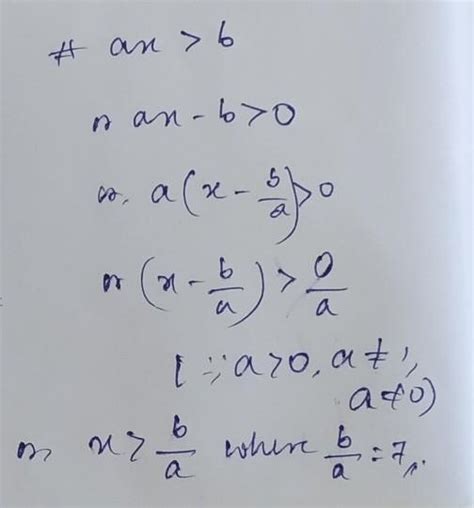 # ax > b
or ax - b > 0
or, a(x - b/a) > 0
or (x - b/a) > 0/a
[∵ a > 0, a ≠ 1,
a ≠ 0)
or, x > b/a where b/a = 7,.